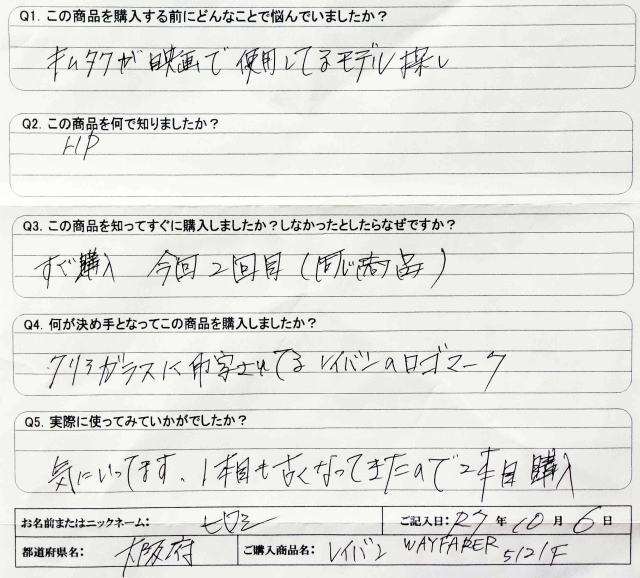 Q1. この商品を購入する前にどんなことで悩んでいましたか？
キムタクが映画で使用してるモデル探し
Q2. この商品を何で知りましたか？
HP
Q3. この商品を知ってすぐに購入しましたか？しなかったとしたらなぜですか？
すぐ購入 今回2回目（同じ商品）
Q4. 何が決め手となってこの商品を購入しましたか？
クリアガラスに印字されてるレイバンのロゴマーク
Q5. 実際に使ってみていかがでしたか？
気にいってます、1本目も古くなってきたので2本目購入
お名前またはニックネーム： ヒロミ ご記入日：R7年10月6日
都道府県名： 大阪府 ご購入商品名： レイバン WAYFARER 5121F